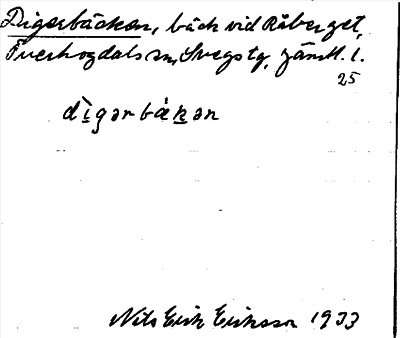 Digerbäcken, bäck vid Råberget,
Överhogdals sn, Svegs tg, Jämtl. l.
25
dìgərbákən
Nils Erik Eriksson 1933